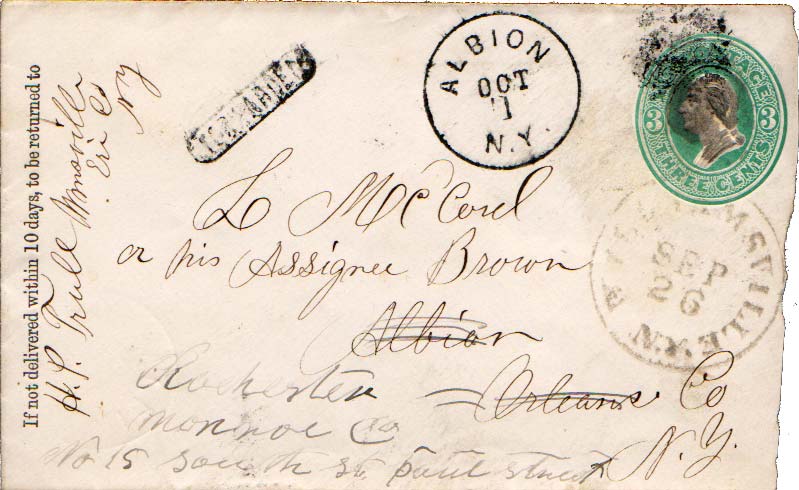 If not delivered within 10 days, to be returned to
H.P. Trull
Eri Co
NY
FORWARDED
ALBION
OCT
1
N.Y.
U.S. POSTAGE
3 3
THREE CENTS
SEP
26
N.Y.
L McCord
or his Assignee Brown
Albion
Orleans Co
N.Y.
Rochester
Monroe Co
No 15 South St paul street